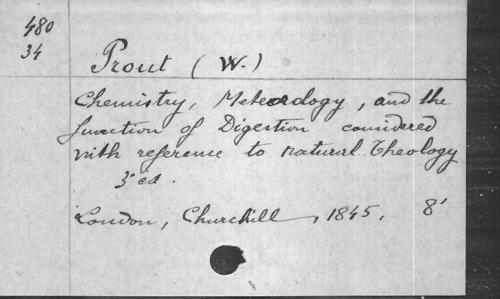 480
34
Prout (W.)
Chemistry, Meteorology, and the
function of Digestion considered
with reference to natural Theology
3' ed.
London, Churchill, 1845. 8'